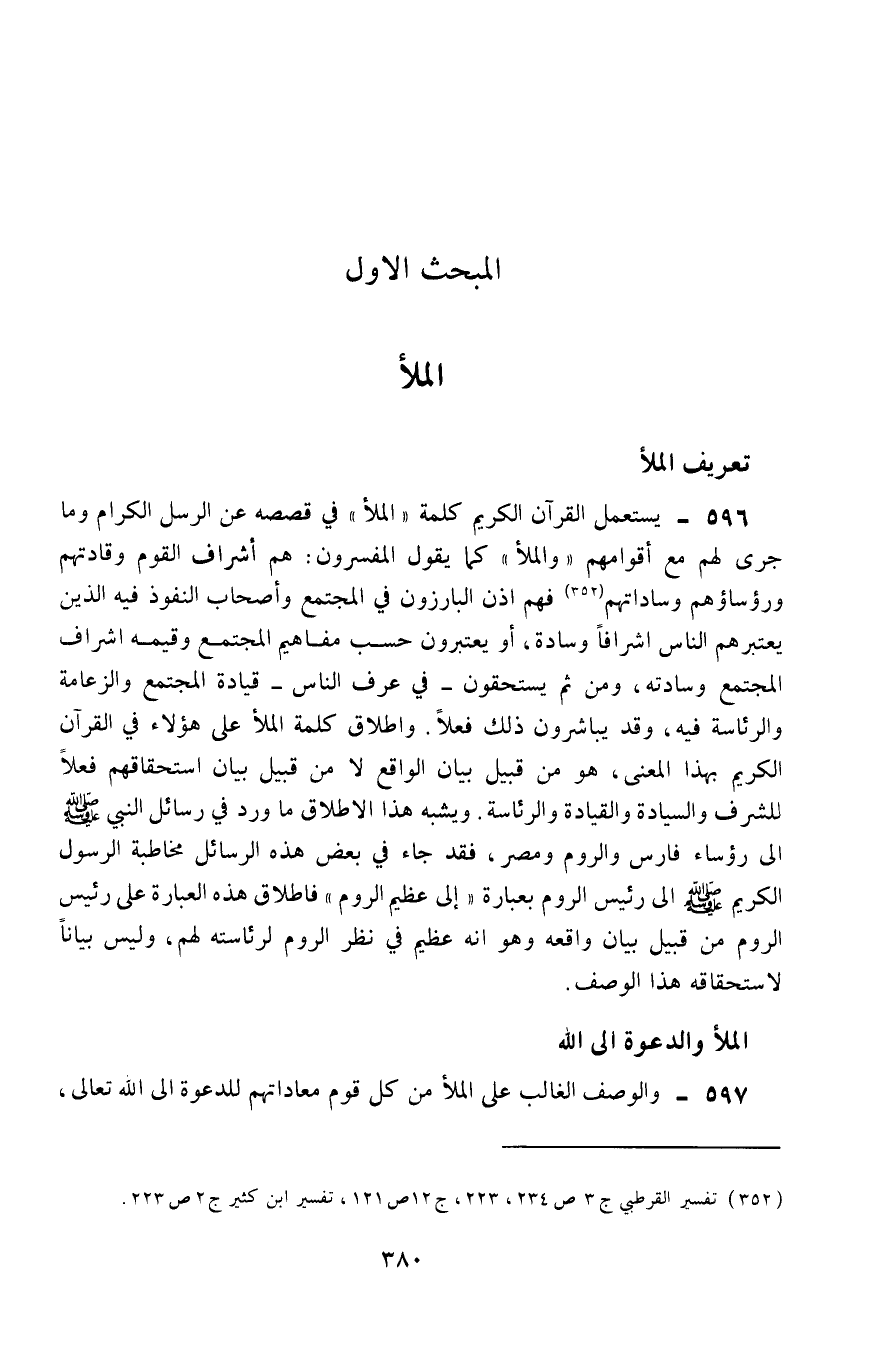 المبحث الاول
الملأ
تعريف الملأ
٥٩٦ ـ يستعمل القرآن الكريم كلمة « الملأ » في قصصه عن الرسل الكرام وما
جرى لهم مع أقوامهم « والملأ » كما يقول المفسرون: هم أشراف القوم وقادتهم
ورؤساؤهم وساداتهم(٣٥٢) فهم اذن البارزون في المجتمع وأصحاب النفوذ فيه الذين
يعتبرهم الناس اشرافاً وسادة، أو يعتبرون حسب مفاهيم المجتمع وقيمه اشراف
المجتمع وسادته، ومن ثم يستحقون ـ في عرف الناس ـ قيادة المجتمع والزعامة
والرئاسة فيه، وقد يباشرون ذلك فعلاً. واطلاق كلمة الملأ على هؤلاء في القرآن
الكريم بهذا المعنى، هو من قبيل بيان الواقع لا من قبيل بيان استحقاقهم فعلاً
للشرف والسيادة والقيادة والرئاسة. ويشبه هذا الاطلاق ما ورد في رسائل النبي ﷺ
الى رؤساء فارس والروم ومصر، فقد جاء في بعض هذه الرسائل مخاطبة الرسول
الكريم ﷺ الى رئيس الروم بعبارة « إلى عظيم الروم » فاطلاق هذه العبارة على رئيس
الروم من قبيل بيان واقعه وهو انه عظيم في نظر الروم لرئاسته لهم، وليس بياناً
لاستحقاقه هذا الوصف.
الملأ والدعوة الى الله
٥٩٧ ـ والوصف الغالب على الملأ من كل قوم معاداتهم للدعوة الى الله تعالى،
(٣٥٢) تفسير القرطبي ج ٣ ص ٢٣٤، ٢٢٣، ج١٢ص١٢١، تفسير ابن كثير ج٢ ص٢٢٣.
٣٨٠